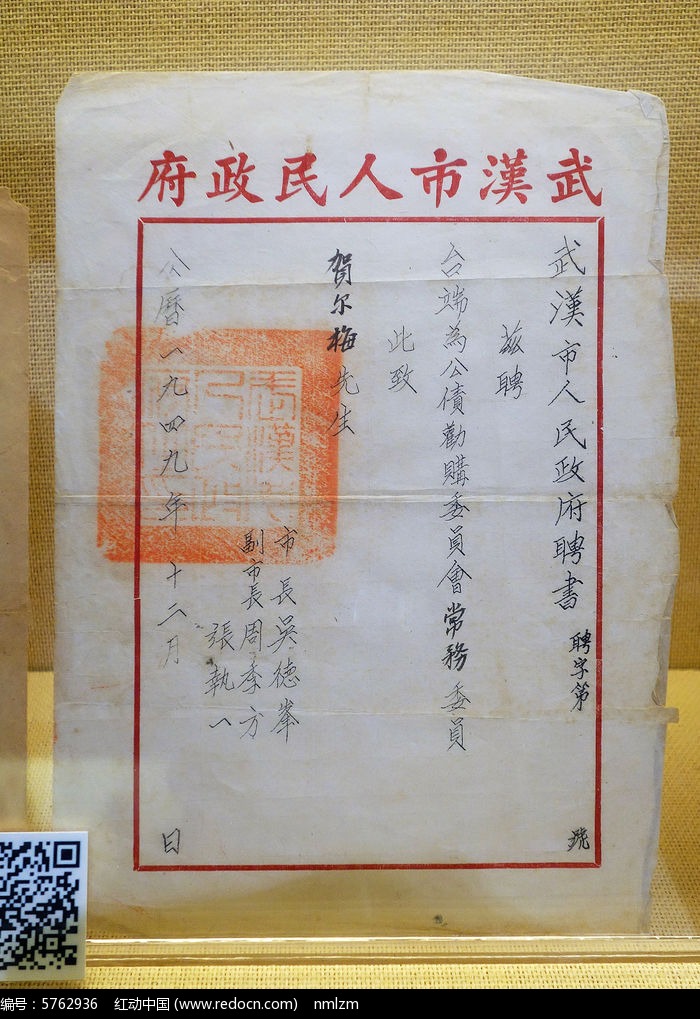 武漢市人民政府
武漢市人民政府聘書
聘字第 號
茲聘
台端為公債勸購委員會常務委員
此致
賀尔梅先生
市長吳德峯
副市長周季方
張執一
公曆一九四九年十二月 日
编号：5762936 红动中国 (www.redocn.com) nmlzm